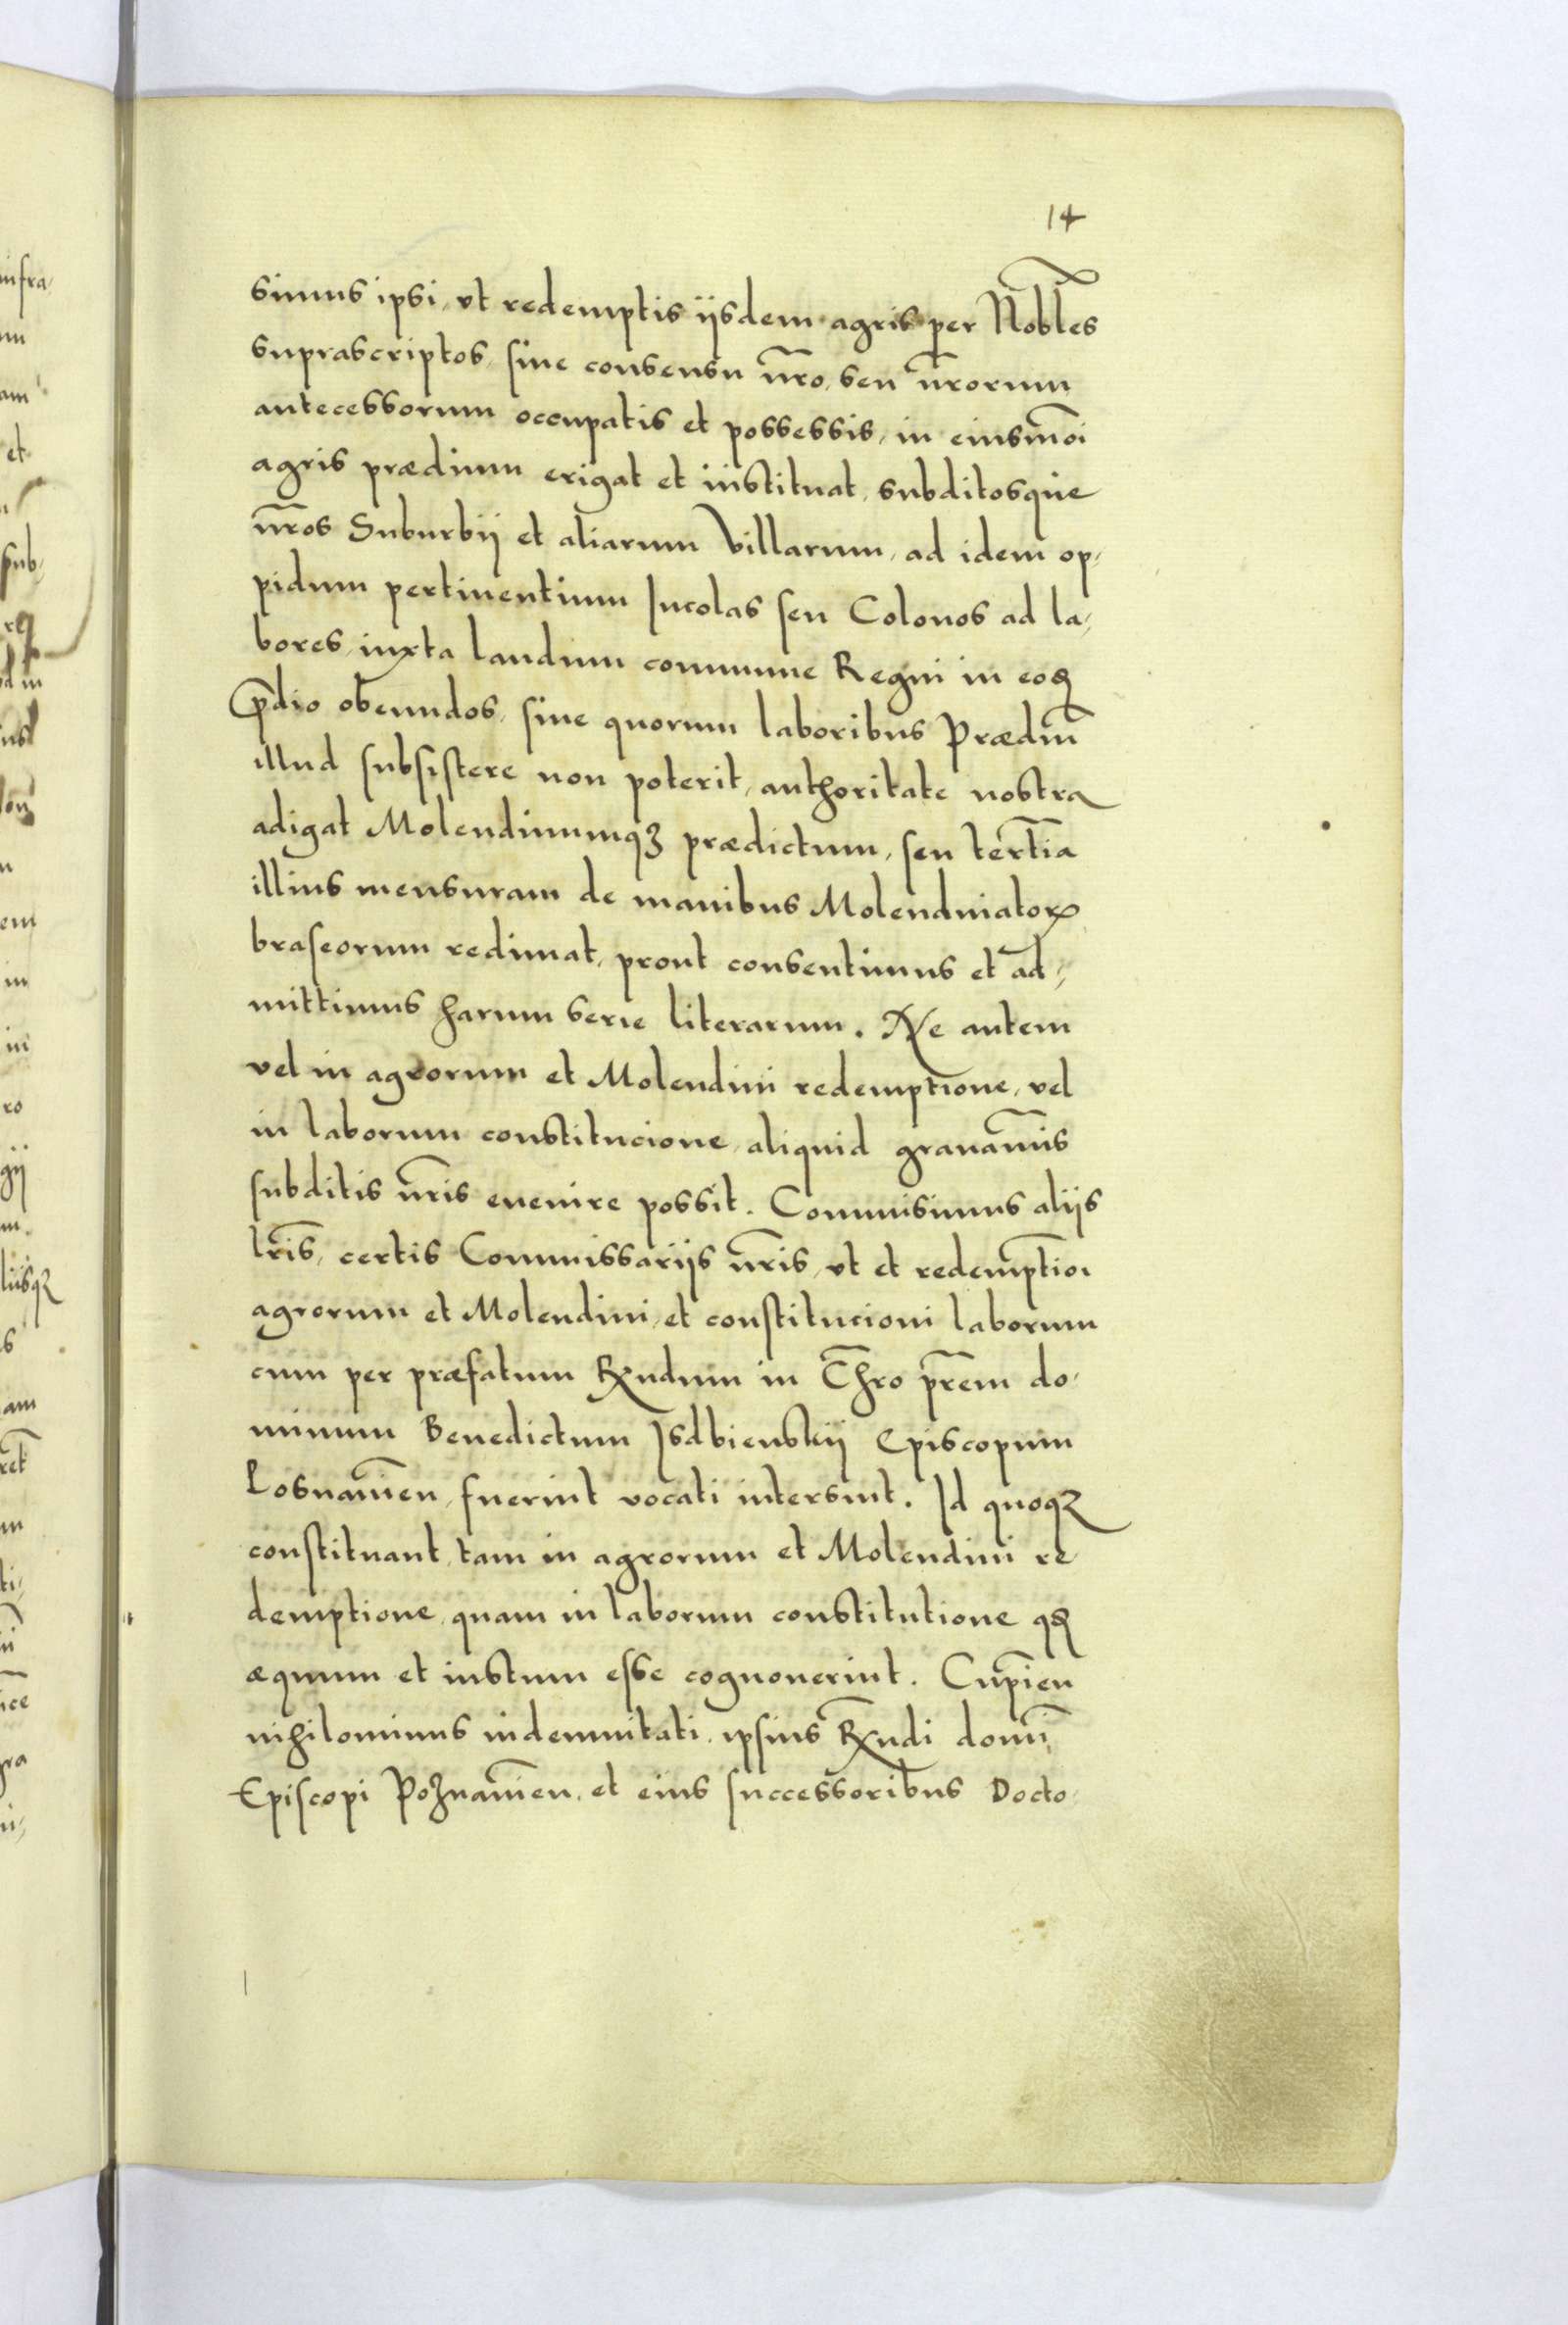 14
simus ipsi, vt redemptis iisdem agris per Nobl̃es
suprascriptos, sine consensu nr̃o, seu nr̃orum
antecessorum occupatis et possessis, in eiusmõi
agris prædium erigat et instituat, subditosque
nr̃os Suburbij et aliarum Villarum, ad idem op,
pidum pertinentium Incolas seu Colonos ad la,
bores, iuxta laudum commune Regni in eoꝗ
p̃dio obeundos, sine quorum laboribus Prædiũ
illud subsistere non poterit, authoritate nostra
adigat Molendinumqꝫ prædictum, seu tertĩa
illius mensuram de manibus Molendiniatorꝝ
braseorum redimat, prout consentimus et ad,
mittimus harum serie literarum. Ne autem
vel in agrorum et Molendini redemptione, vel
in laborum constitucione, aliquid grauam̃is
subditis nr̃is euenire possit. Commisimus alijs
lr̃is, certis Commissarijs nr̃is, vt et redempt̃ioi
agrorum et Molendini, et constitucioni laborum
cum per præfatum Rx̃ndum in Chr̃o pr̃em do,
minum Benedictum Isdbienskij Episcopum
Posnanieñ, fuerint vocati intersint. Id quoqꝫ
constituant, tam in agrorum et Molendini re
demptione, quam in laborum constitutione qꝗ
æquum et iustum esse cognouerint. Cup̃ien
nihilominus indemnitati, ipsius Rx̃ndi domĩ
Episcopi Poznanieñ, et eius successoribus Docto,